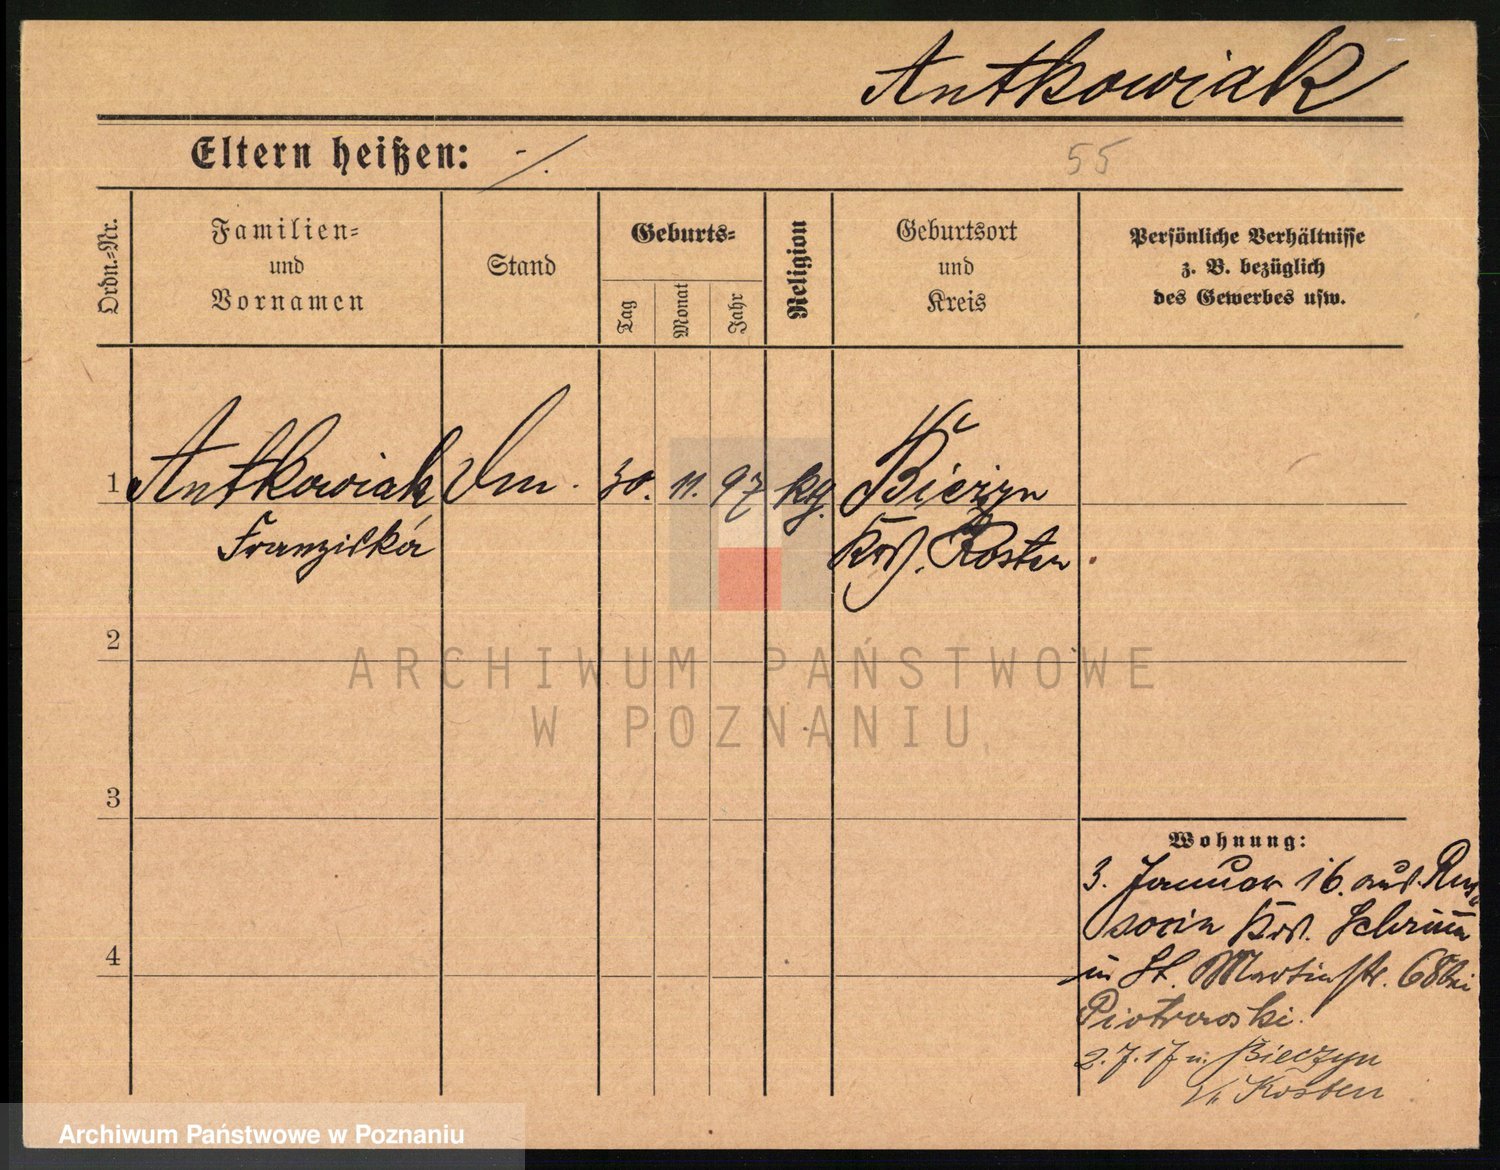 Antkowiak
Eltern heißen: -/.
55
Ordn.-Nr.
Familien-
und
Vornamen
Stand
Geburts-
Tag
Monat
Jahr
Religion
Geburtsort
und
Kreis
Persönliche Verhältnisse
z. B. bezüglich
des Gewerbes usw.
1 Antkowiak 30. 11. 97 kth. Bieczyn
Franziska Krs. Kosten
2
ARCHIWUM PAŃSTWOWE
W POZNANIU
3
Wohnung:
3. Januar 16. aus
Krs. Schrimm
4
in St. Martinstr. 68 bei
Piotrowski.
2.7.17 n. Bieczyn
Kosten
Archiwum Państwowe w Poznaniu